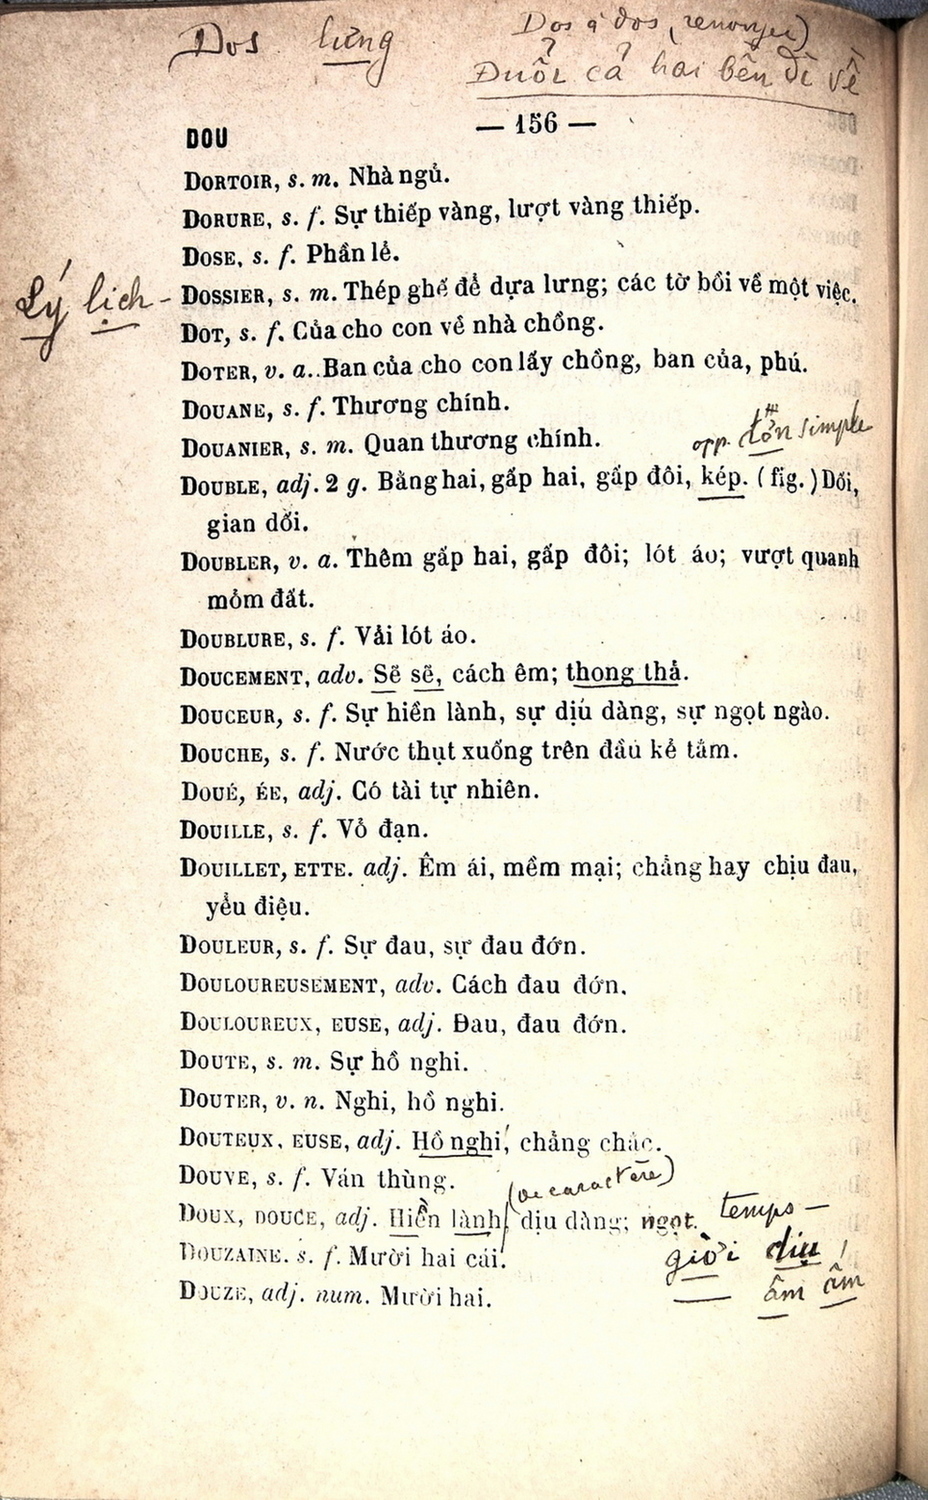 Dos lưng
Dos à dos (renvoyer)
Đuổi cả hai bên đi về
DOU
— 156 —
DORTOIR, s. m. Nhà ngủ.
DORURE, s. f. Sự thiếp vàng, lượt vàng thiếp.
DOSE, s. f. Phần lẻ.
Lý lịch - DOSSIER, s. m. Thép ghế để dựa lưng; các tờ bồi về một việc.
DOT, s. f. Của cho con về nhà chồng.
DOTER, v. a. Ban của cho con lấy chồng, ban của, phú.
DOUANE, s. f. Thương chính.
DOUANIER, s. m. Quan thương chính.
opp. đơn simple
DOUBLE, adj. 2 g. Bằng hai, gấp hai, gấp đôi, kép. (fig.) Dối,
gian dối.
DOUBLER, v. a. Thêm gấp hai, gấp đôi; lót áo; vượt quanh
mỏm đất.
DOUBLURE, s. f. Vải lót áo.
DOUCEMENT, adv. Sẽ sẽ, cách êm; thong thả.
DOUCEUR, s. f. Sự hiền lành, sự dịu dàng, sự ngọt ngào.
DOUCHE, s. f. Nước thụt xuống trên đầu kẻ tắm.
DOUÉ, ÉE, adj. Có tài tự nhiên.
DOUILLE, s. f. Vỏ đạn.
DOUILLET, ETTE. adj. Êm ái, mềm mại; chẳng hay chịu đau,
yểu điệu.
DOULEUR, s. f. Sự đau, sự đau đớn.
DOULOUREUSEMENT, adv. Cách đau đớn.
DOULOUREUX, EUSE, adj. Đau, đau đớn.
DOUTE, s. m. Sự hồ nghi.
DOUTER, v. n. Nghi, hồ nghi.
DOUTEUX, EUSE, adj. Hồ nghi, chẳng chắc.
DOUVE, s. f. Ván thùng.
(de caractère)
DOUX, DOUCE, adj. Hiền lành, dịu dàng; ngọt. temps —
DOUZAINE. s. f. Mười hai cái. giời dịu,
DOUZE, adj. num. Mười hai. — ấm ấm